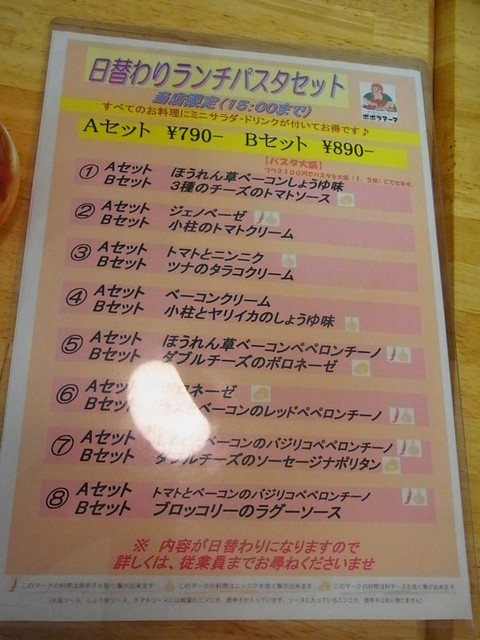 日替わりランチパスタセット
当店限定(15:00まで)
ポポラマーマ
すべてのお料理にミニサラダ・ドリンクが付いてお得です♪
Aセット ¥790- Bセット ¥890-
【パスタ大盛】
プラス100円でパスタを大盛(1.5倍)にできます。
① Aセット ほうれん草ベーコンしょうゆ味
Bセット 3種のチーズのトマトソース
② Aセット ジェノベーゼ
Bセット 小柱のトマトクリーム
③ Aセット トマトとニンニク
Bセット ツナのタラコクリーム
④ Aセット ベーコンクリーム
Bセット 小柱とヤリイカのしょうゆ味
⑤ Aセット ほうれん草ベーコンペペロンチーノ
Bセット ダブルチーズのボロネーゼ
⑥ Aセット ボロネーゼ
Bセット ベーコンのレッドペペロンチーノ
⑦ Aセット ベーコンのバジリコペペロンチーノ
Bセット ダブルチーズのソーセージナポリタン
⑧ Aセット トマトとベーコンのバジリコペペロンチーノ
Bセット ブロッコリーのラグーソース
※ 内容が日替わりになりますので
詳しくは、従業員までお尋ねくださいませ
このマークの料理は唐辛子を抜く事が出来ます このマークの料理はニンニクを抜く事が出来ます このマークの料理は粉チーズを抜く事が出来ます